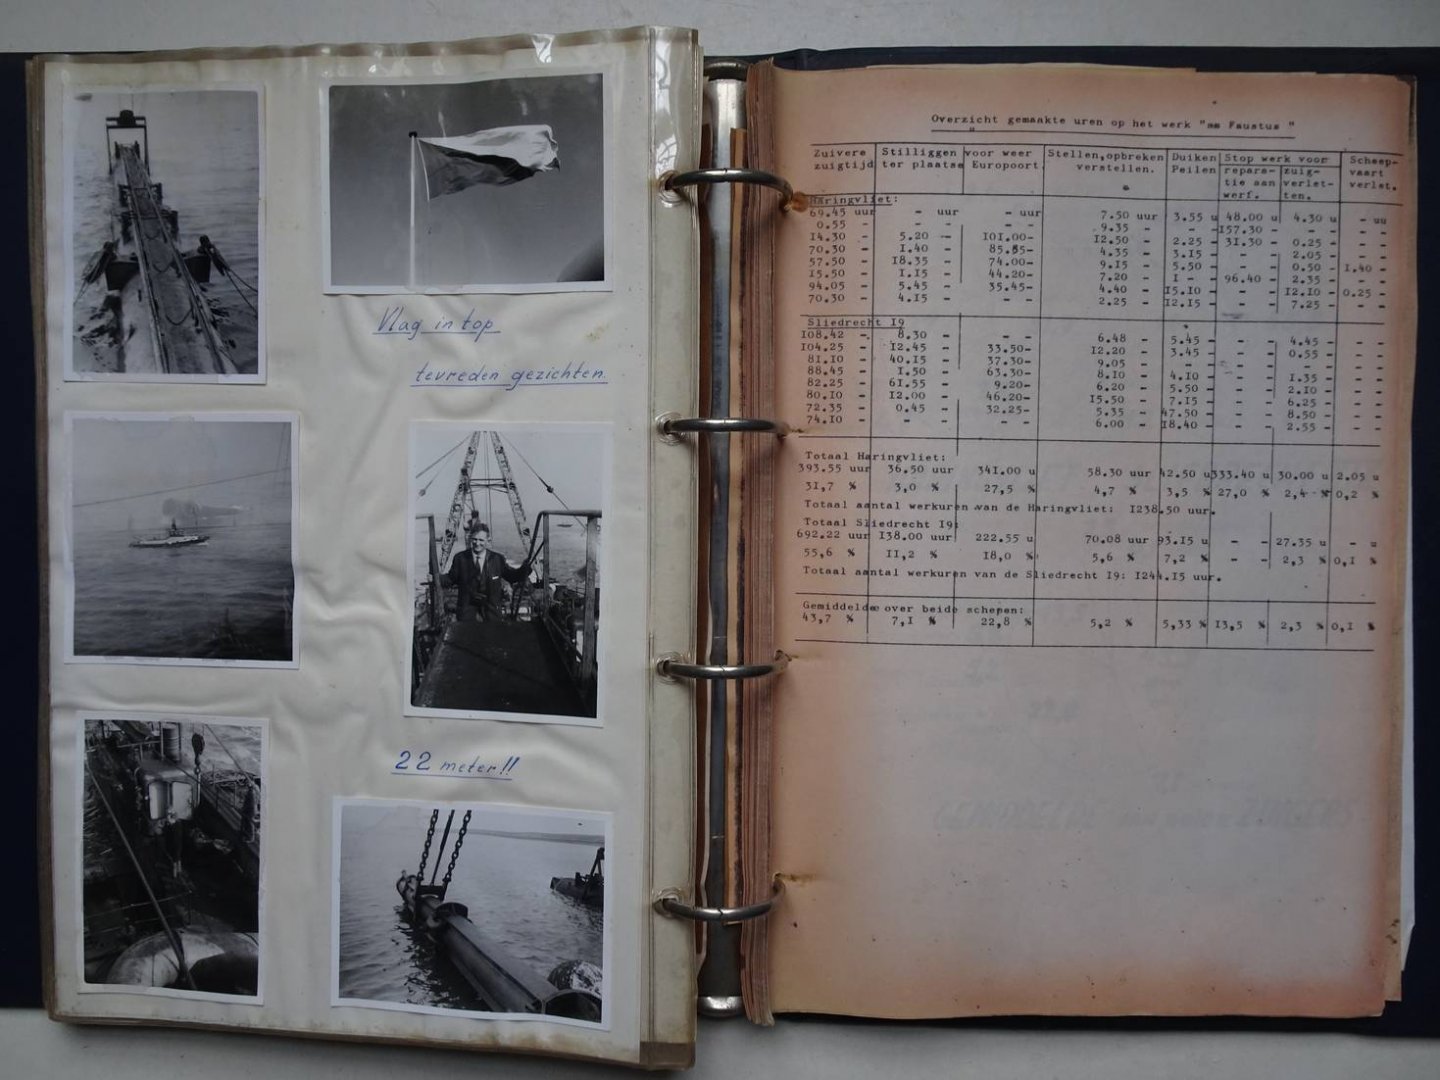 Vlag in top
tevreden gezichten.
22 meter!!
Overzicht gemaakte uren op het werk "ss Faustus "
Zuivere Stilliggen voor weer Stellen,opbreken Duiken Stop werk voor Scheep-
zuigtijd ter plaatse Europoort. verstellen. Peilen repara- zuig- vaart
tie aan verlet- verlet.
werf. ten.
Haringvliet:
69.45 uur - uur - uur 7.50 uur 3.55 u 48.00 u 4.30 u - uu
0.55 - - - - - 9.35 - - - 157.30 - - - - -
14.30 - 5.20 - 101.00- 12.50 - 2.25 - 31.30 - 0.25 - - -
70.30 - 1.40 - 85.55- 4.35 - 3.15 - - - 2.05 - - -
57.50 - 18.35 - 74.00- 9.15 - 5.50 - - - 0.50 - 1.40 -
15.50 - 1.15 - 44.20- 7.20 - 1 - - 96.40 - 2.35 - - -
94.05 - 5.45 - 35.45- 4.40 - 15.10 - - - 12.10 - 0.25 -
70.30 - 4.15 - - - 2.25 - 12.15 - - - 7.25 - - -
Sliedrecht 19
108.42 - 8.30 - - - 6.48 - 5.45 - - - 4.45 - - -
104.25 - 12.45 - 33.50- 12.20 - 3.45 - - - 0.55 - - -
81.10 - 40.15 - 37.30- 9.05 - - - - - - - - -
88.45 - 1.50 - 63.30- 8.10 - 4.10 - - - 1.35 - - -
82.25 - 61.55 - 9.20- 6.20 - 5.50 - - - 2.10 - - -
80.10 - 12.00 - 46.20- 15.50 - 7.15 - - - 6.25 - - -
72.35 - 0.45 - 32.25- 5.35 - 47.50 - - - 8.50 - - -
74.10 - - - - - 6.00 - 18.40 - - - 2.55 - - -
Totaal Haringvliet:
393.55 uur 36.50 uur 341.00 u 58.30 uur 42.50 u 333.40 u 30.00 u 2.05 u
31,7 % 3,0 % 27,5 % 4,7 % 3,5 % 27,0 % 2,4 % 0,2 %
Totaal aantal werkuren van de Haringvliet: 1238.50 uur.
Totaal Sliedrecht 19:
692.22 uur 138.00 uur 222.55 u 70.08 uur 93.15 u - - 27.35 u - u
55,6 % 11,2 % 18,0 % 5,6 % 7,2 % - - 2,3 % 0,1 %
Totaal aantal werkuren van de Sliedrecht 19: 1244.15 uur.
Gemiddelde over beide schepen:
43,7 % 7,1 % 22,8 % 5,2 % 5,33 % 13,5 % 2,3 % 0,1 %